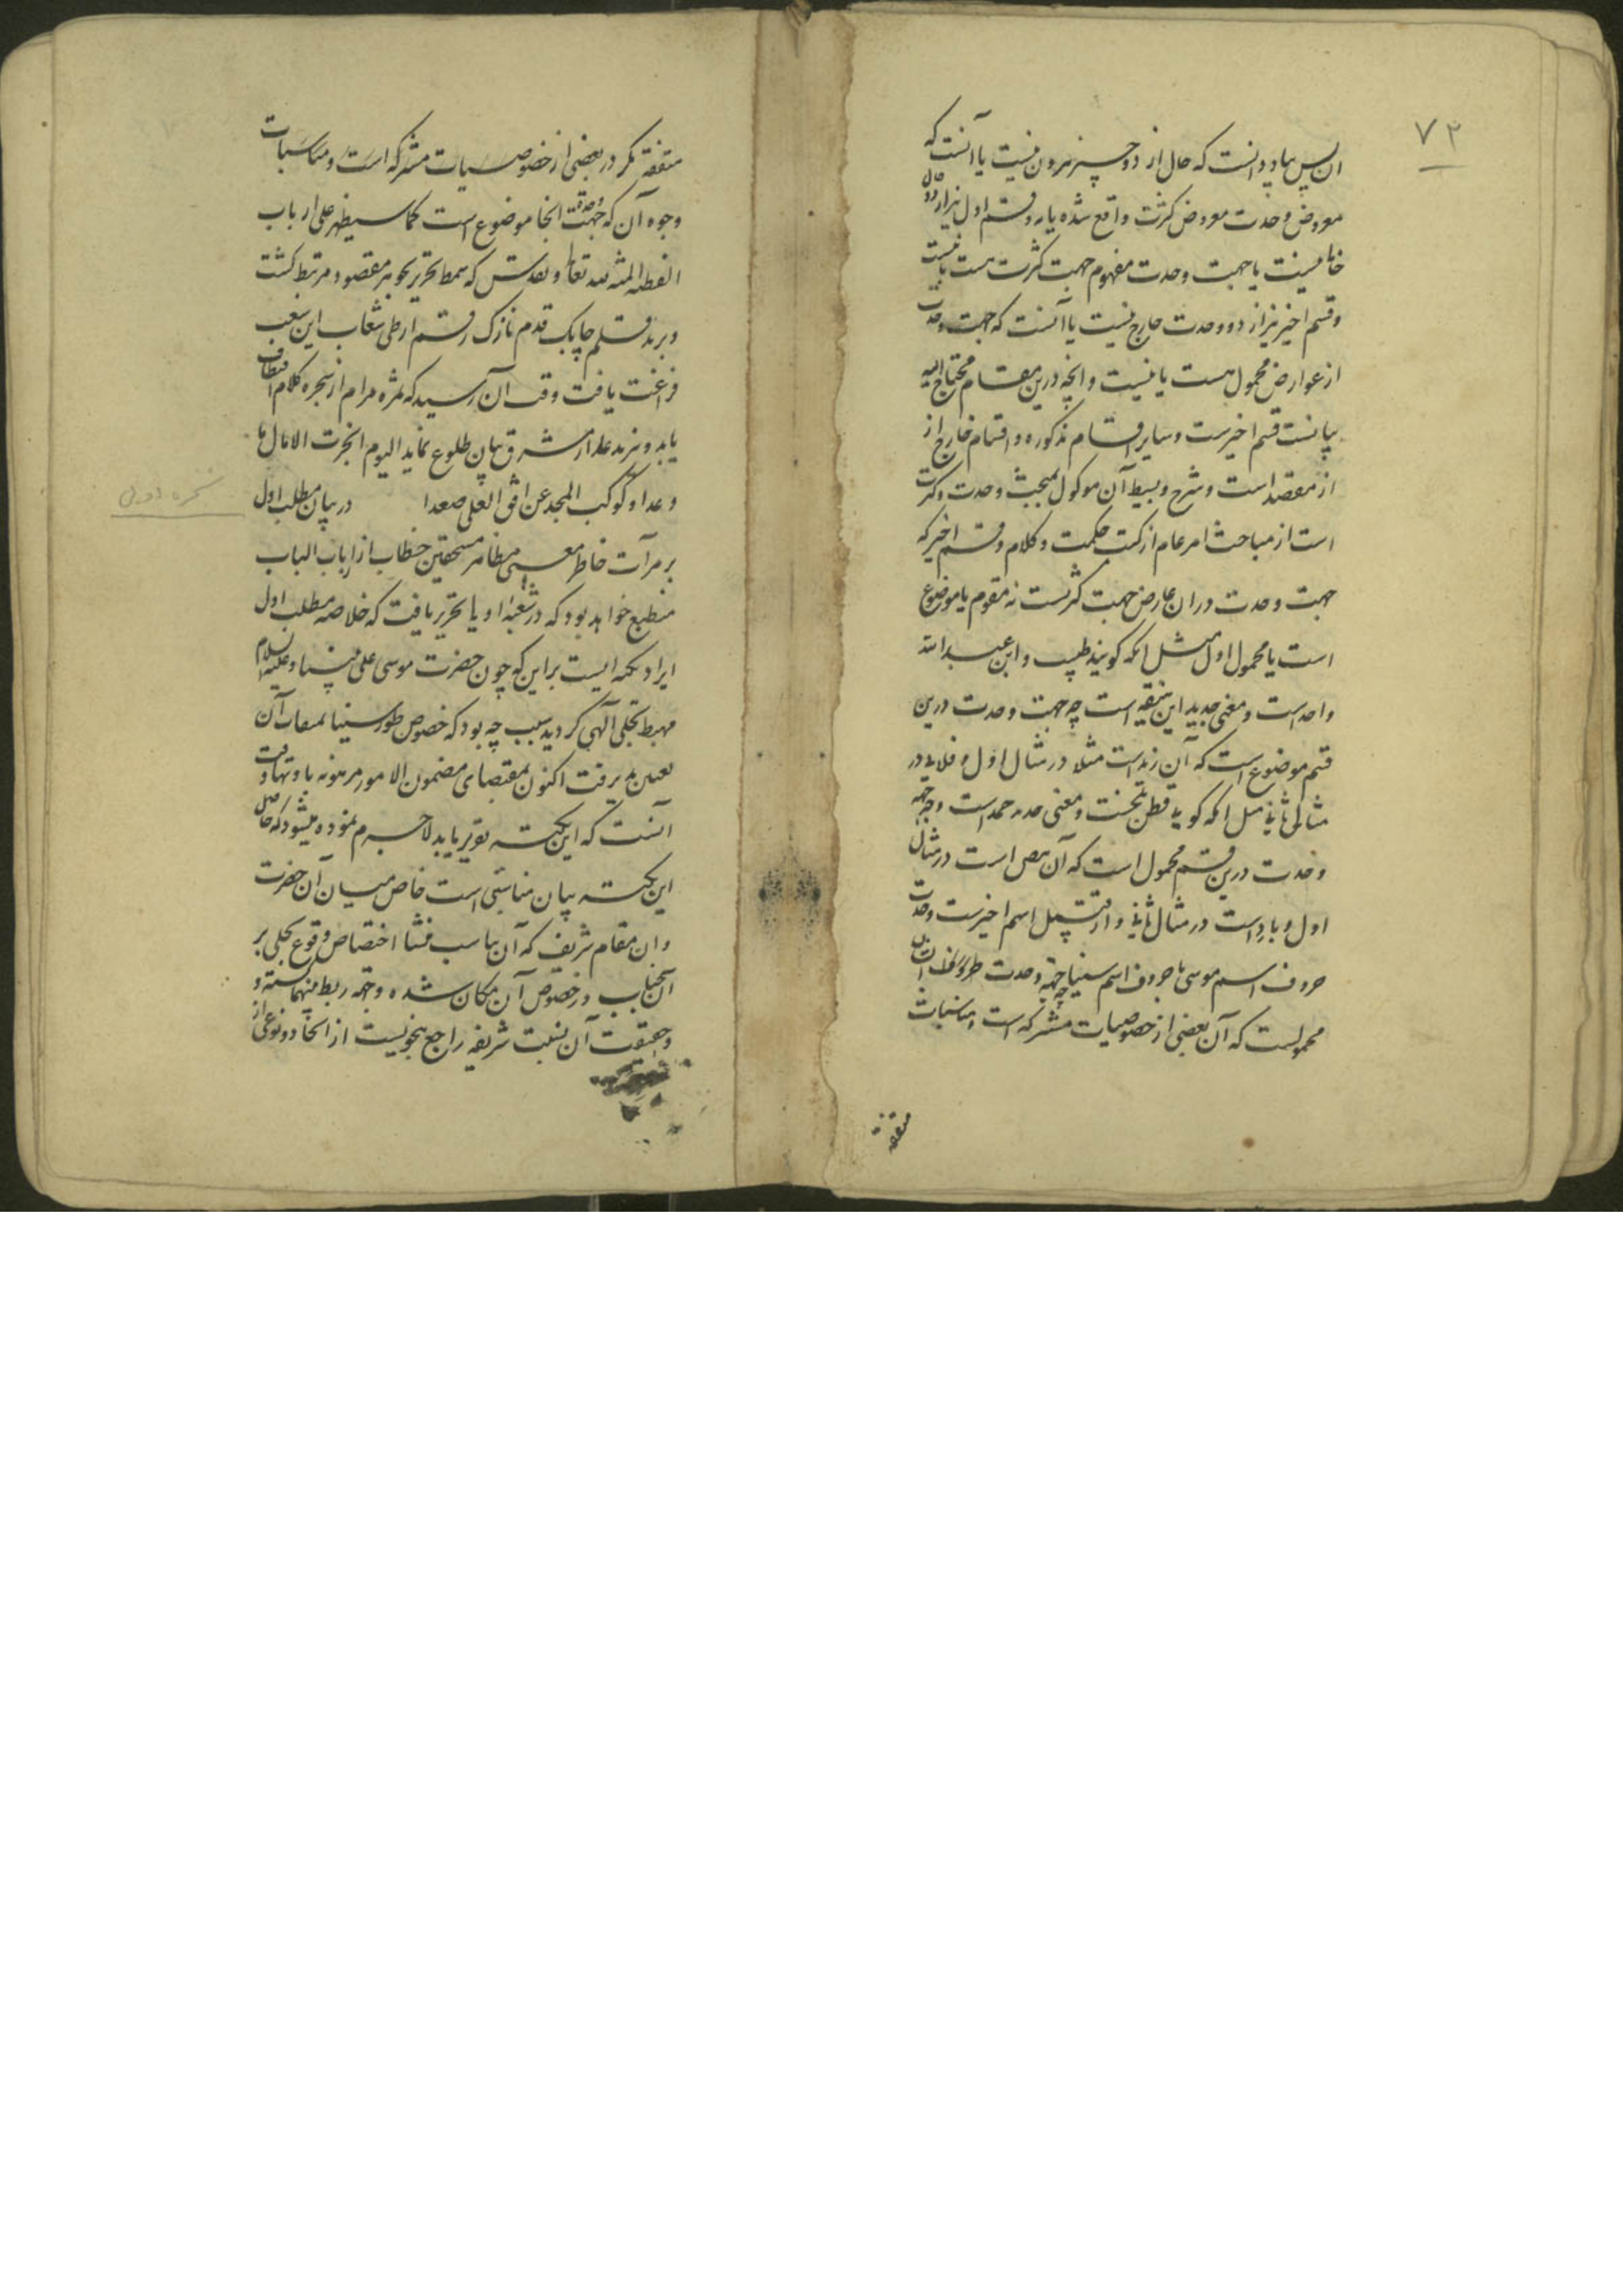 ۷۲
ان پس بباید دانست که حال از دو چیز بیرون نیست یا آنست که
معروض وحدت معروض کثرت واقع شده یا نه و قسم اول نیز از دو حال
خالی نیست یا جهت وحدت مفهوم جهت کثرت هست یا نیست
و قسم اخیر نیز از دو وحدت خارج نیست یا آنست که جهت وحدت
از عوارض محمول هست یا نیست و انچه درین مقام محتاج الیه
بیانست قسم اخیرست و سایر اقسام مذکوره و اقسام خارج از
از مقصد است و شرح و بسیط آن موکول بمبحث وحدت و کثرت
است از مباحث امر عام از کتب حکمت و کلام و قسم اخیر که
جهت وحدت در ان عارض جهت کثرتست نه مقوم یا موضوع
است یا محمول اول مثل انکه کویند طبیب و ابن عبدالله
واحد است و معنی جدید این متفقه است چه جهت وحدت درین
قسم موضوع است که آن زید است مثلا در مثال اول و فلان در
مثال ثانی مثل انکه کوید قطن تجست و معنی است و جهه
وحدت درین قسم محمول است که آن است در مثال
اول و بارد است در مثال ثانی و از قبیل اسم اخیرست وحدت
حروف اسم موسی با حروف اسم سینا چه جهه وحدت طرفین اینجا
محمولست که آن بعضی از خصوصیات مشترکه است و مناسبات
متفقه
متفقه مکر در بعضی از خصوصیات مشترکه است و مناسبات
وجوه آن که جهت وحدت انجا موضوع است کما سیظهر علی ارباب
الفطنه المنة لله تعالی و تقدس که سمط تحریر بجوهر مقصود مرتبط کشت
و برید قلم چابک قدم نازک رقم از طی شعاب این شعب
فراغت یافت وقت آن رسید که ثمره مرام از شجره کلام اقتطاف
یابد و از مشرق بیان طلوع نماید الیوم انجزت الامال ما
وعدا و کوکب المجد عن افق العلی صعدا در بیان مطلب اول
بر مرآت خاطر معنی مظاهر مستحقین خطاب از ارباب الباب
منطبع خواهد بود که در شعبه اولی تحریر یافت که خلاصه مطلب اول
ایراد نکته ایست براین که چون حضرت موسی علی نبینا و علیه السلام
مهبط تجلی الهی کردید سبب چه بود که خصوص طور سینا بمیقات آن
تعیین پذیرفت اکنون بمقتضای مضمون الامور مرهونه باوقاتها وقت
آنست که این نکته تقریر یابد لاجرم نموده میشود که حاصل
این نکته بیان مناسبتی است خاص میان آن حضرت
و ان مقام شریف که آن مناسب منشا اختصاص وقوع تجلی بر
آنجناب در خصوص آن مکان شده وجهه ربط بینهما کشته و
حقیقت آن نسبت شریفه راجع بنحویست از اتحاد و نوعی از